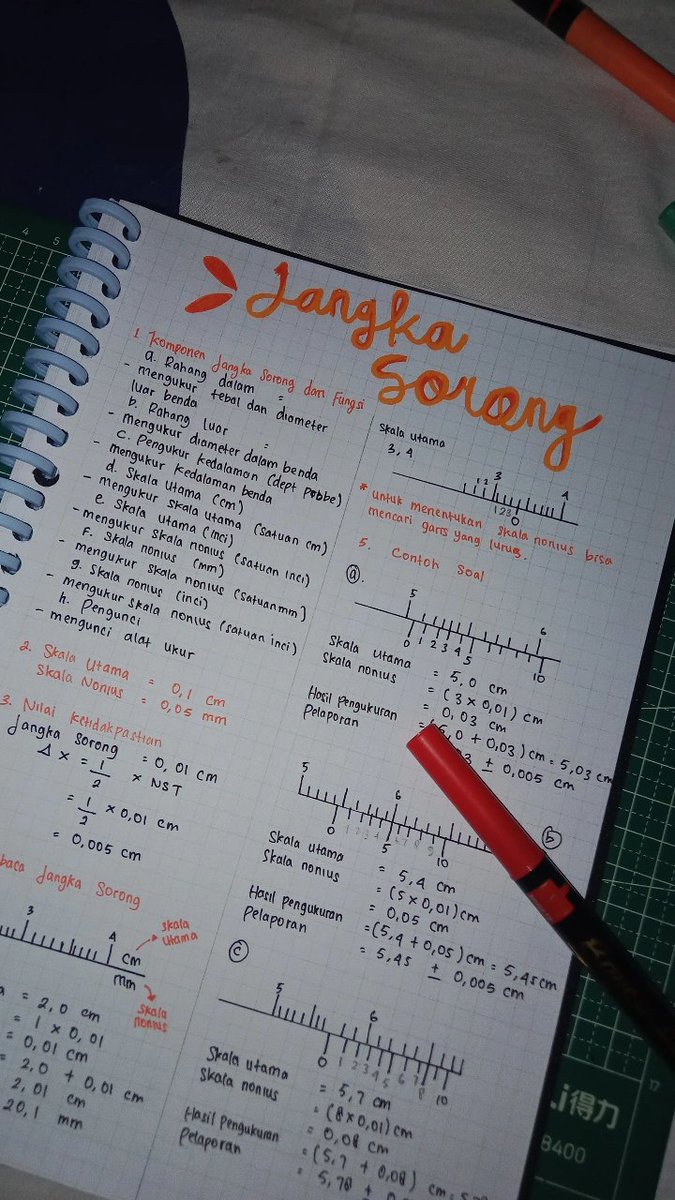 Jangka Sorong
1. Komponen Jangka Sorong dan Fungsi
a. Rahang dalam =
- mengukur tebal dan diameter
luar benda
b. Rahang luar =
- mengukur diameter dalam benda
c. Pengukur kedalaman (dept Probbe)
- mengukur kedalaman benda
d. Skala Utama (cm)
- mengukur skala utama (satuan cm)
e. Skala utama (inci)
- mengukur skala nonius (satuan inci)
f. Skala nonius (mm)
- mengukur skala nonius (satuan mm)
g. Skala nonius (inci)
- mengukur skala nonius (satuan inci)
h. Pengunci
- mengunci alat ukur
2. Skala Utama = 0,1 cm
Skala Nonius = 0,05 mm
3. Nilai Ketidakpastian
Jangka Sorong = 0,01 cm
Δx = 1/2 x NST
= 1/2 x 0,01 cm
= 0,005 cm
baca Jangka Sorong
3 4 cm
skala utama
mm
skala nonius
= 2,0 cm
= 1 x 0,01
= 0,01 cm
= 2,0 + 0,01 cm
2,01 cm
20,1 mm
Skala utama
3,4
1 2 3 4
1 2 3 0
* untuk menentukan skala nonius bisa
mencari garis yang lurus.
5. Contoh Soal
a.
5 6
0 1 2 3 4 5 10
Skala utama = 5,0 cm
Skala nonius = (3 x 0,01) cm
= 0,03 cm
Hasil Pengukuran = (5,0 + 0,03) cm = 5,03 cm
Pelaporan ± 0,005 cm
b
5 6
0 1 2 3 4 5 6 7 8 9 10
Skala utama = 5,4 cm
Skala nonius = (5 x 0,01) cm
= 0,05 cm
Hasil Pengukuran = (5,4 + 0,05) cm = 5,45 cm
Pelaporan = 5,45 ± 0,005 cm
c
5 6
0 1 2 3 4 5 6 7 8 10
Skala utama = 5,7 cm
Skala nonius = (8 x 0,01) cm
= 0,08 cm
Hasil Pengukuran = (5,7 + 0,08) cm =
Pelaporan = 5,78 ±
4 5
17
Li得力
8400